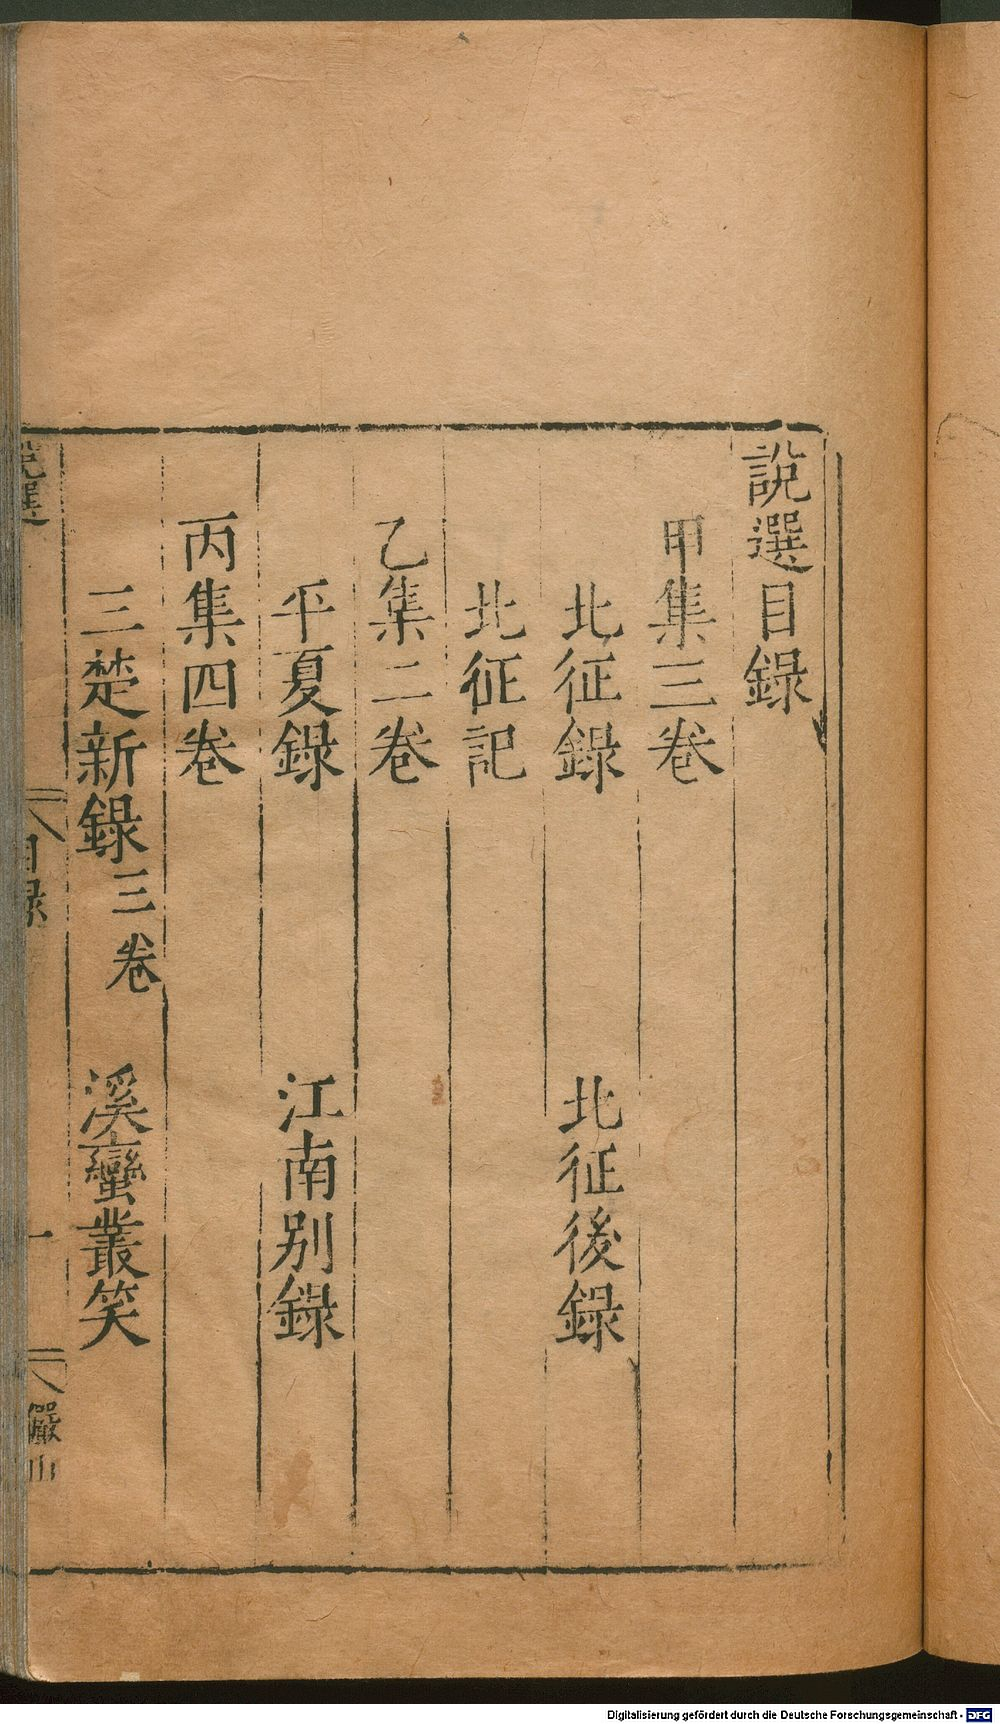 說選目錄
甲集三卷
北征錄　北征後錄
北征記
乙集二卷
平夏錄　江南別錄
丙集四卷
三楚新錄三卷　溪蠻叢笑
說選　目錄　一　儼山
Digitalisierung gefördert durch die Deutsche Forschungsgemeinschaft - DFG